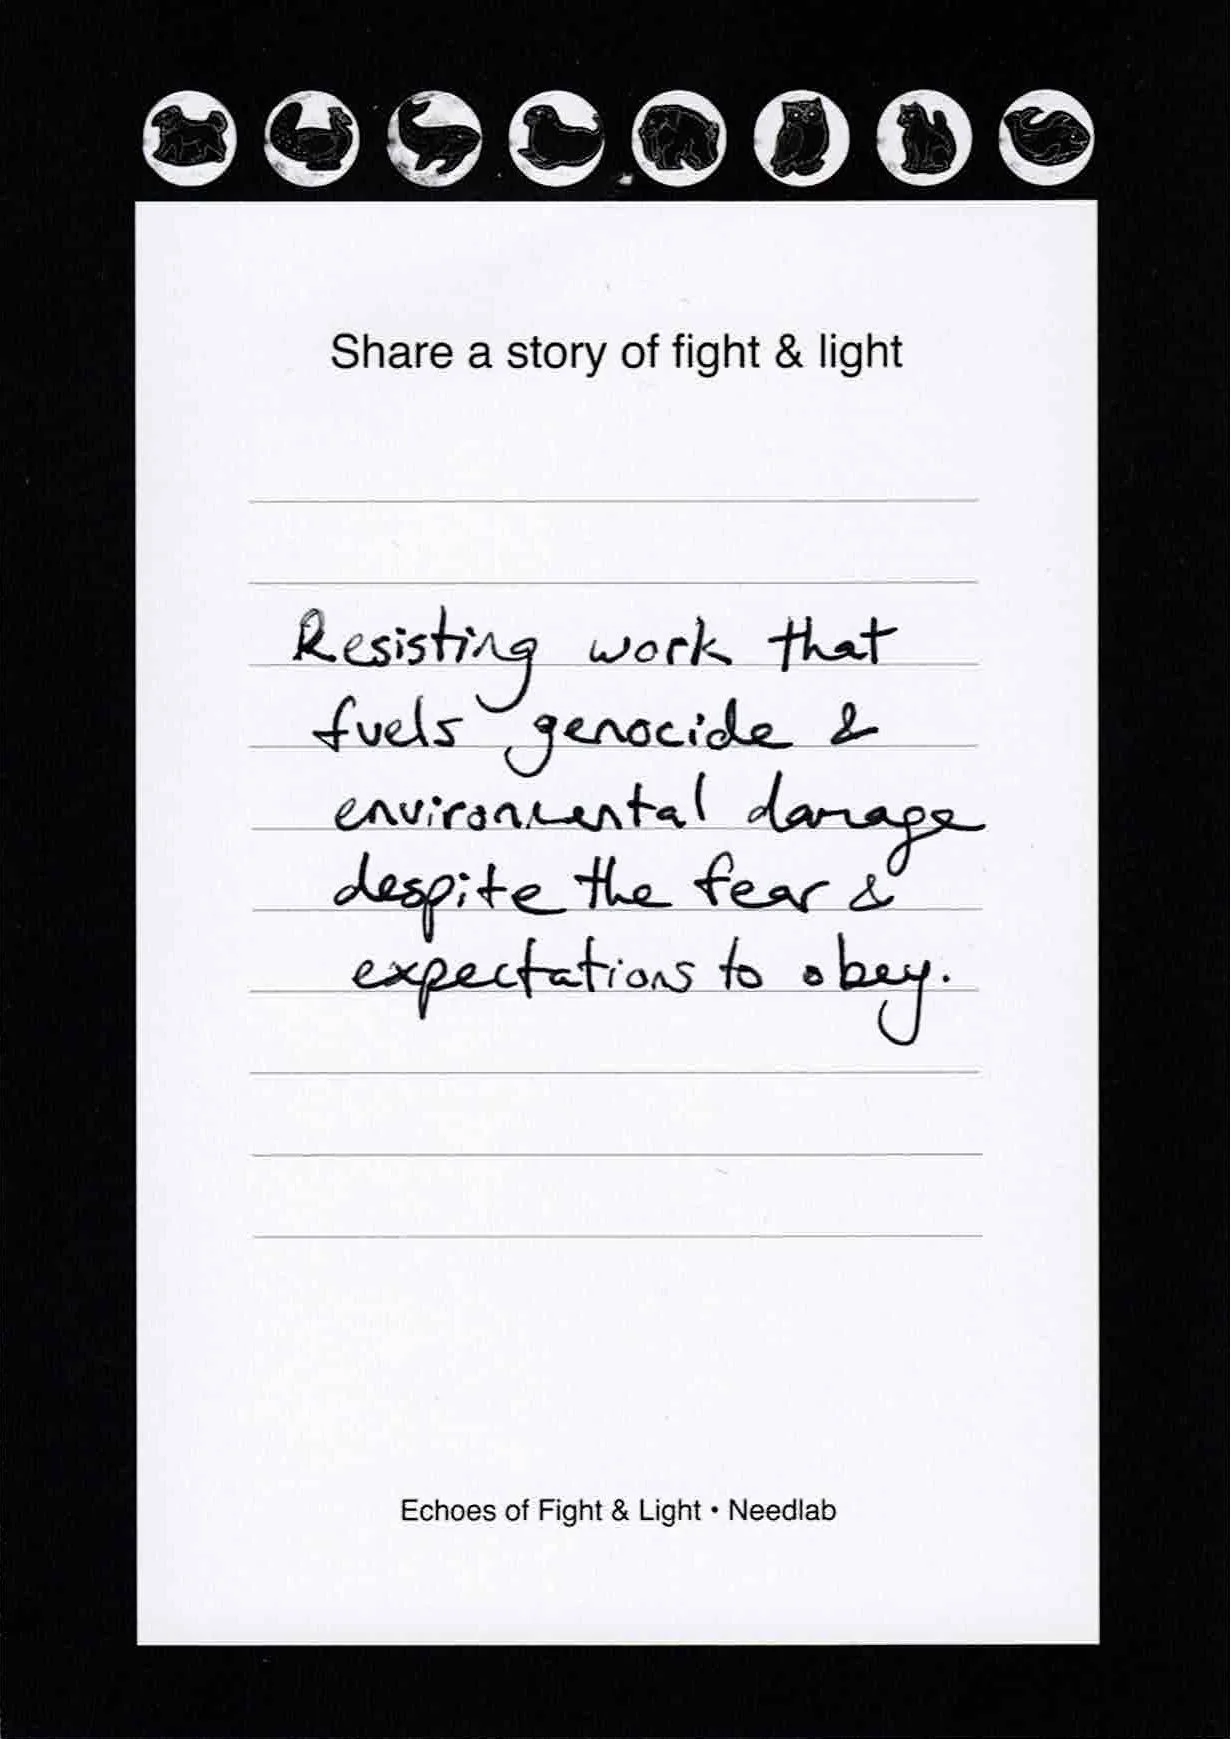 Share a story of fight & light
Resisting work that
fuels genocide &
environmental damage
despite the fear &
expectations to obey.
Echoes of Fight & Light • Needlab